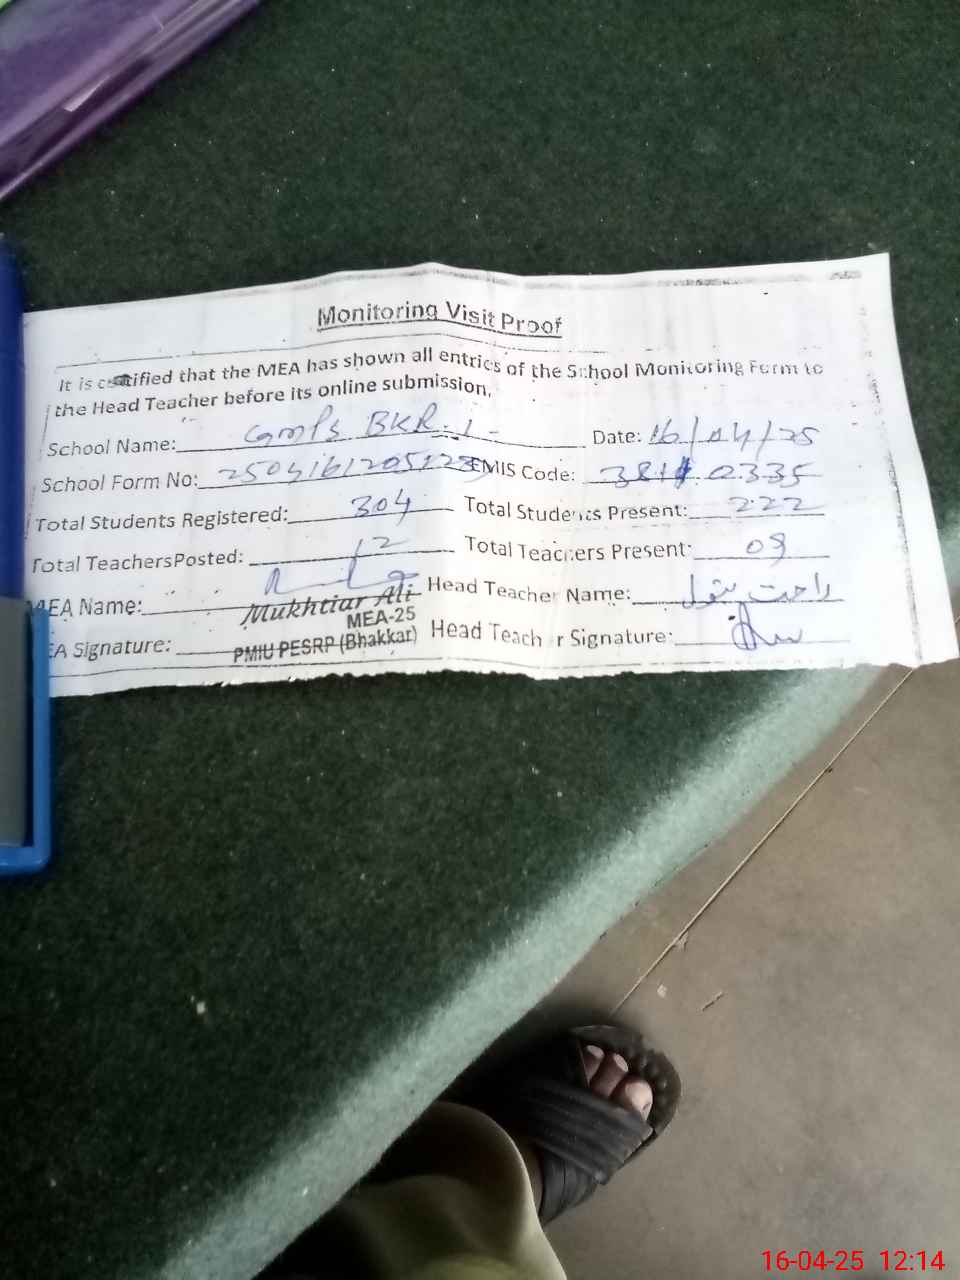 Monitoring Visit Proof
It is certified that the MEA has shown all entries of the School Monitoring Form to
the Head Teacher before its online submission.
School Name: GMPS BKR-1- Date: 16/04/25
School Form No: EMIS Code: 0335
Total Students Registered: 304 Total Students Present: 222
Total TeachersPosted: 12 Total Teachers Present: 09
MEA Name: Mukhtiar Ali Head Teacher Name: راحت بتول
MEA-25
EA Signature: PMIU PESRP (Bhakkar) Head Teach r Signature:
16-04-25 12:14